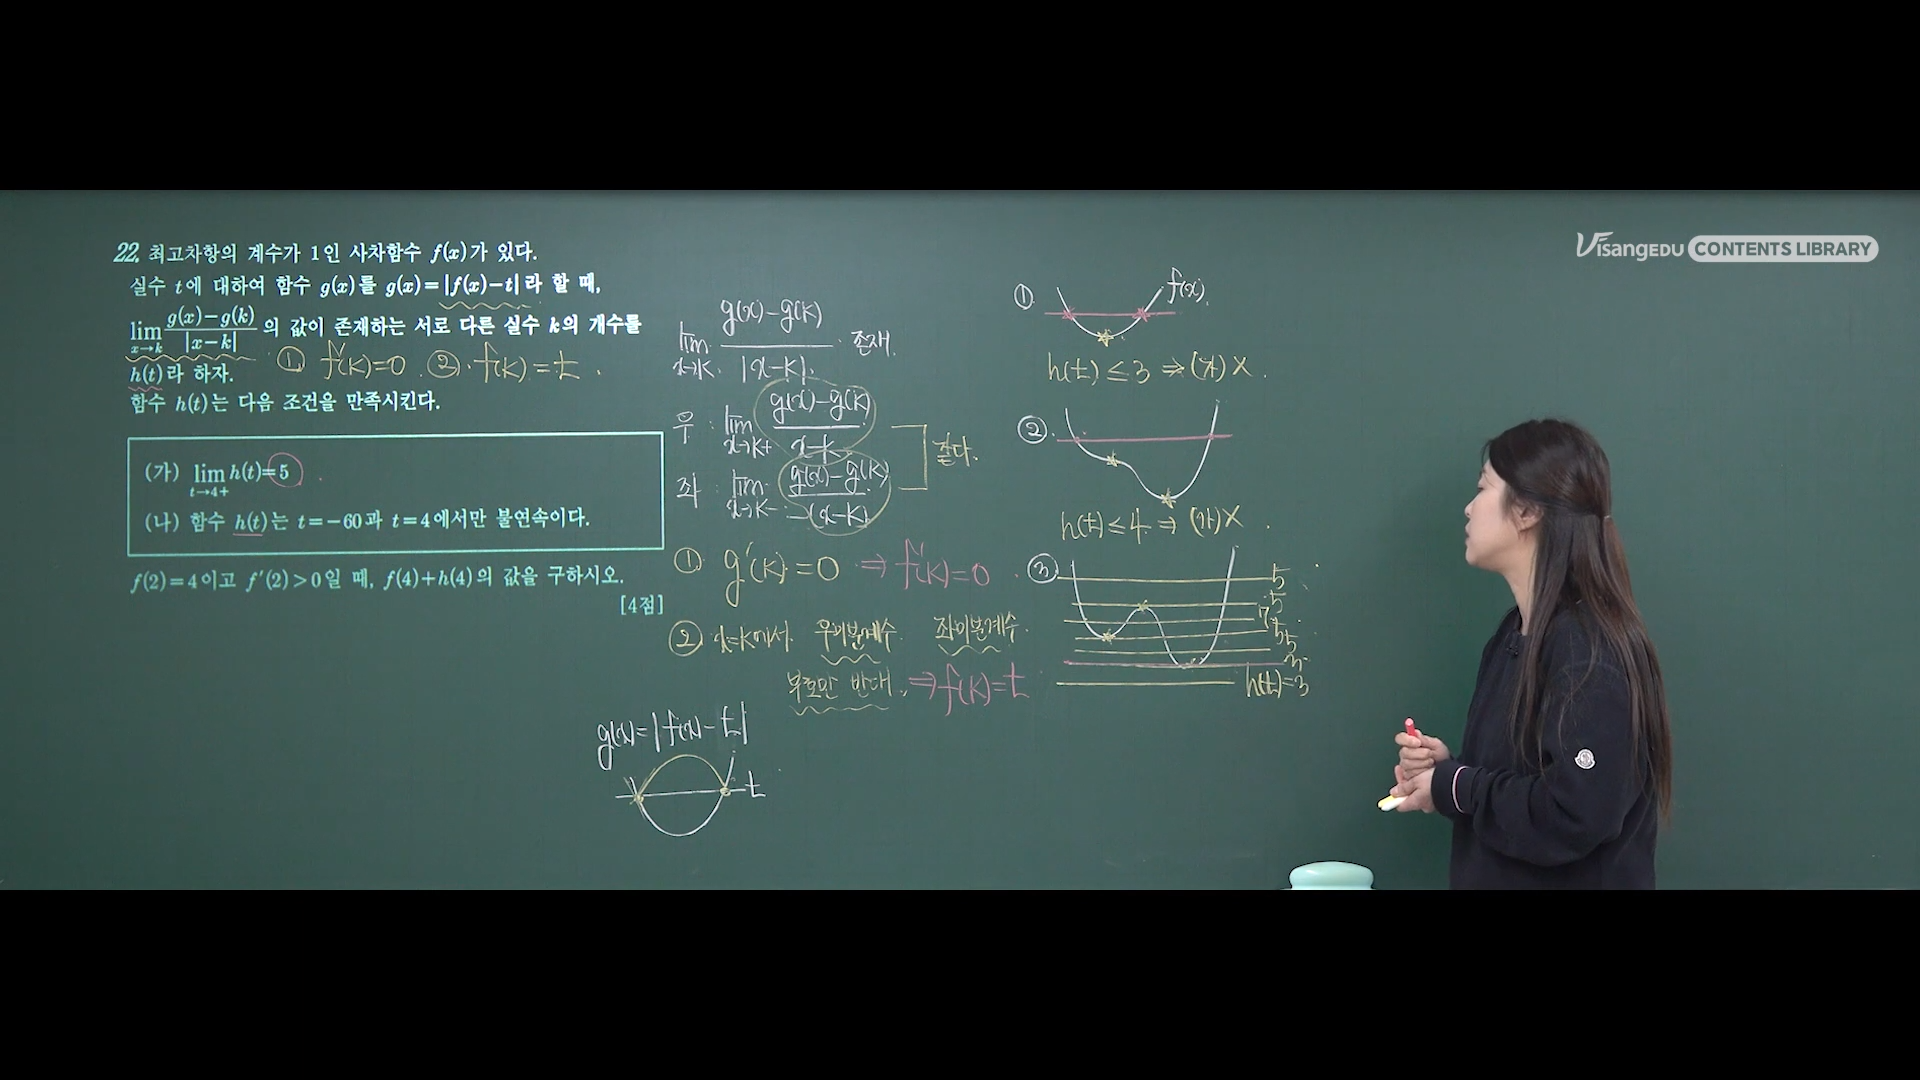 22. 최고차항의 계수가 1인 사차함수 f(x)가 있다.
실수 t에 대하여 함수 g(x)를 g(x)=|f(x)-t|라 할 때,
lim x→k (g(x)-g(k))/|x-k| 의 값이 존재하는 서로 다른 실수 k의 개수를
① f'(k)=0. ② f(k)=t.
h(t)라 하자.
함수 h(t)는 다음 조건을 만족시킨다.
(가) lim t→4+ h(t)=5
(나) 함수 h(t)는 t=-60과 t=4에서만 불연속이다.
f(2)=4이고 f'(2)>0일 때, f(4)+h(4)의 값을 구하시오.
[4점]
lim x→k (g(x)-g(k))/|x-k| 존재.
우 : lim x→k+ (g(x)-g(k))/(x-k)
좌 : lim x→k- (g(x)-g(k))/-(x-k)
같다.
① g'(k)=0 ⇒ f'(k)=0
② x=k에서 우미분계수 좌미분계수
부호만 반대, ⇒ f(k)=t
g(x)=|f(x)-t|
t
① f(x)
h(t)≤3 ⇒ (가)X
②
h(t)≤4 ⇒ (가)X
③
5
5
7
5
h(t)=3
VisangEDU CONTENTS LIBRARY